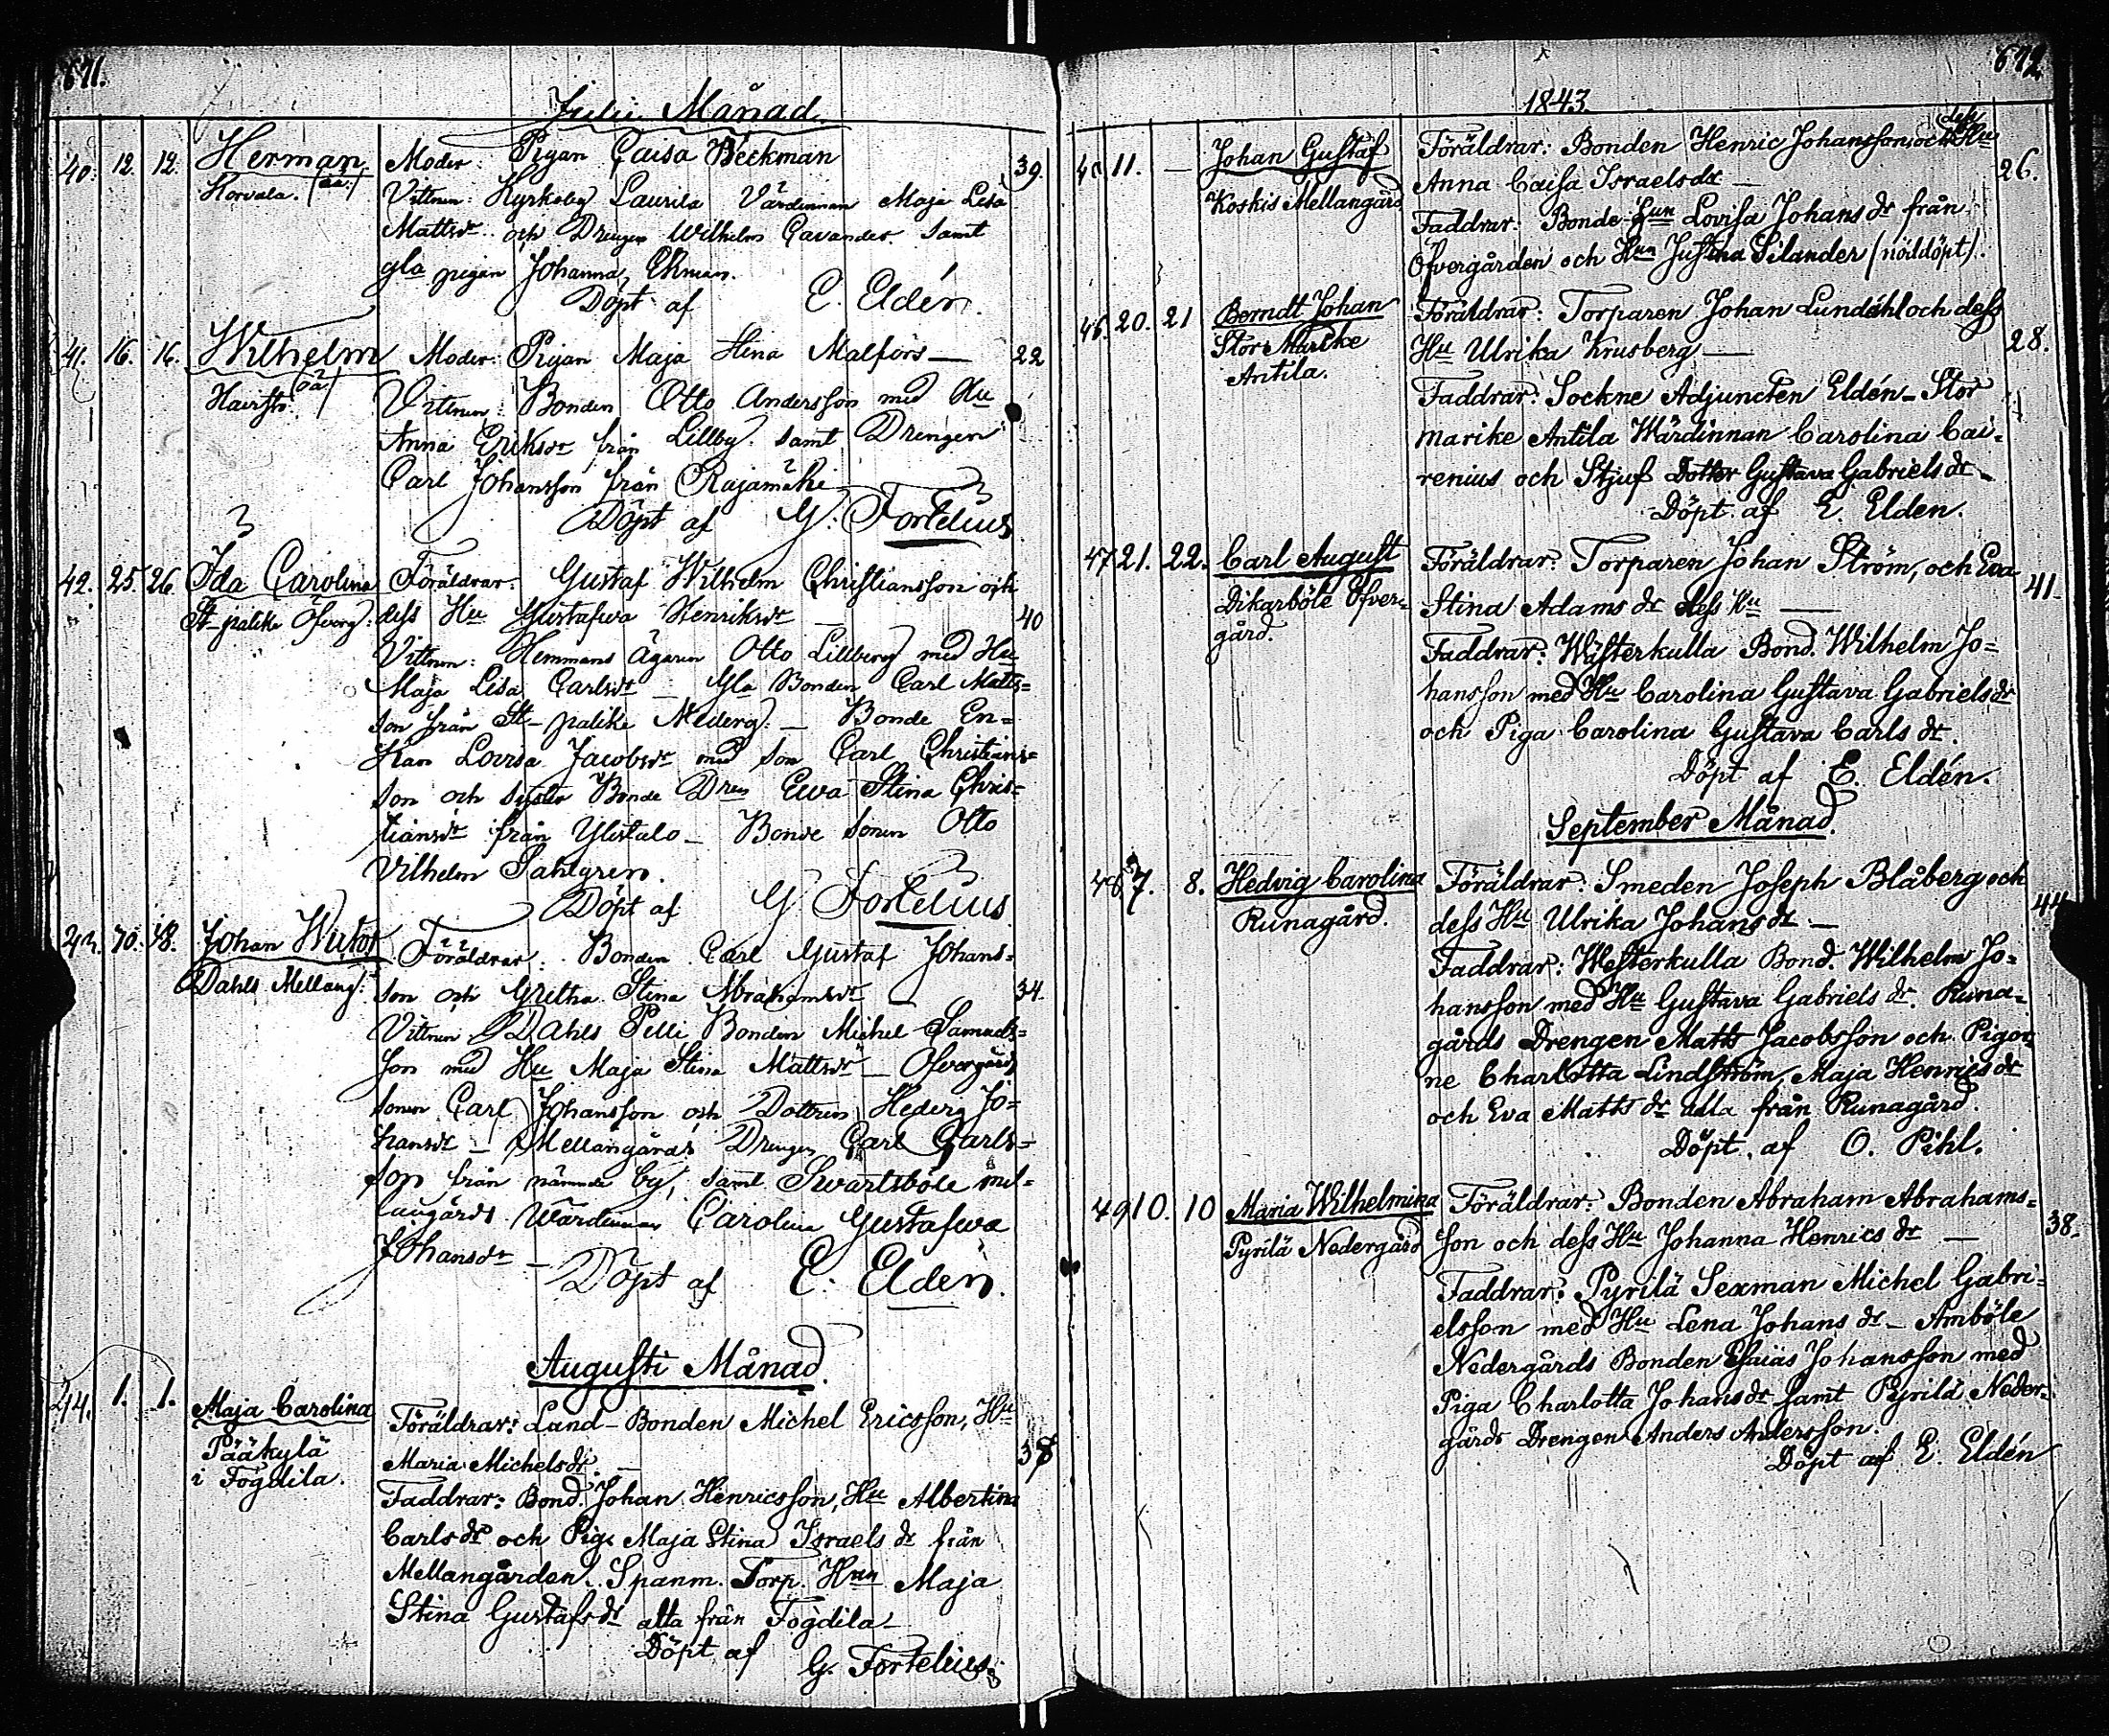 671.
Julii Månad.
40. 12. 12. Herman Moder: Pigan Caisa Weckman 39.
Horvala. (oä:) Vittnen: Kyrkoby Laurila Värdinnan Maja Lisa
Mattsdr och Drengen Wilhelm Cavander samt
gla pigan Johanna Ekman.
Döpt af E. Eldén.
41. 16. 16. Wilhelm Moder: Pigan Maja Stina Malfors — 22
(oä) Vittnen: Bonden Otto Andersson med Hu
Anna Eriksdr från Lillby samt Drengen
Carl Johansson från Rajamäki
Döpt af G. Fortelius
42. 25. 26. Ida Carolina Föräldrar: Gustaf Wilhelm Christiansson och
St-palike Öfverg: dess Hu Gustafwa Henriksdr — 40
Vittnen: Hemmans Ägaren Otto Lillberg med Hu
Maja Lisa Carlsdr — Gla Bonden Carl Matts=
son från St-palike Nederg: — Bonde En=
kan Lovisa Jacobsdr med Son Carl Christians=
son och syster Bonde Dren Ewa Stina Chris=
tiansdr från Ylistalo — Bonde Sonen Otto
Vilhelm Sahlgren.
Döpt af G Fortelius
Johan Victor Föräldrar: Bonden Carl Gustaf Johans=
Dahls Mellang: son och Gretha Stina Abrahamsdr — 34.
Vittnen Dahls Pelli Bonden Michel Samuels=
son med Hu Maja Stina Mattsdr — Ofvergårds
sonen Carl Johansson och Dottren Hedvig Jo=
hansdr — Mellangårds Drengen Carl Carls=
son från nämnde by, samt Swartsböle mel=
langårds Wärdinnan Carolina Gustafwa
Johansdr —
Döpt af E. Eldén.
Augusti Månad.
44. 1. 1. Maja Carolina Föräldrar: Land-Bonden Michel Ericsson, Hu
Pääkylä Maria Michelsdr. — 38
i Fogdila. Faddrar: Bond. Johan Henricsson, Hu Albertina
Carlsdr och Pig. Maja Stina Israels dr från
Mellangården. Spanm. Torp. Hun Maja
Stina Gustafsdr alla från Fogdila —
Döpt af G. Fortelius.
672
1843
11. — Johan Gustaf Föräldrar: Bonden Henric Johansson och dess Hu
Koskis Mellangård Anna Caisa Israelsdr — 26.
Faddrar: Bonde Hun Lovisa Johans dr från
Öfvergården och Hun Justina Silander (nöddöpt).
46. 20. 21 Berndt Johan Föräldrar: Torparen Johan Lundahl och dess
Stor Marike Hu Ulrika Krusberg — 28.
Antila. Faddrar: Sockne Adjuncten Eldén — Stor
marike Antila Wärdinnan Carolina Cai=
renius och Stjuf Dotter Gustava Gabriels dr —
Döpt af E. Elden.
47 21. 22. Carl August Föräldrar: Torparen Johan Ström, och Eva
Dikarböle Öfver= Stina Adams dr dess Hu — 41.
gård. Faddrar: Wästerkulla Bond. Wilhelm Jo=
hansson med Hu Carolina Gustava Gabrielsdr
och Piga Carolina Gustava Carls dr.
Döpt af E. Eldén.
September Månad.
48 7. 8. Hedvig Carolina Föräldrar: Smeden Joseph Blåberg och
Runagård. dess Hu Ulrika Johansdr — 44
Faddrar: Westerkulla Bond. Wilhelm Jo=
hansson med Hu Gustava Gabriels dr. Runa=
gårds Drengen Matts Jacobsson och Pigor=
ne Charlotta Lindström, Maja Henricsdr
och Eva Matts dr alla från Runagård.
Döpt af O. Pihl.
49 10. 10 Maria Wilhelmina Föräldrar: Bonden Abraham Abrahams=
Pyrilä Nedergård son och dess Hu Johanna Henrics dr — 38.
Faddrar: Pyrilä Sexman Michel Gabri=
elsson med Hu Lena Johans dr — Amböle
Nedergårds Bonden Esaias Johansson med
Piga Charlotta Johansdr samt Pyrilä Neder=
gårds Drengen Anders Andersson.
Döpt af E. Eldén